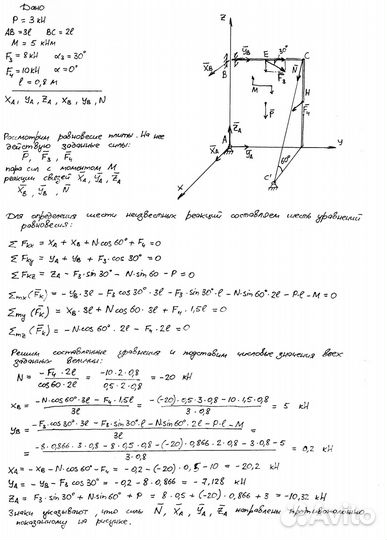 Дано
P = 3 kH
AB = 3l BC = 2l
M = 5 кНм
F₃ = 8 kH α₃ = 30°
F₄ = 10 kH α = 0°
l = 0,8 м
X_A, Y_A, Z_A, X_B, Y_B, N
Z
X_B
B
Y_B
E
30°
C
F₃
N
M
H
P
F₄
A
Z_A
X_A
Y_A
Y
X
60°
C'
Рассмотрим равновесие плиты. На нее
действую заданные силы:
P, F₃, F₄
пара сил с моментом M
реакции связей X_A, Y_A, Z_A
X_B, Y_B, N
Для определения шести неизвестных реакций составляем шесть уравнений
равновесия:
∑ F_kx = X_A + X_B + N·cos60° + F₄ = 0
∑ F_ky = Y_A + Y_B + F₃·cos 30° = 0
∑ F_kz = Z_A - F₃·sin30° - N·sin60 - P = 0
∑m_x(F_k) = -Y_B·3l - F₃cos30°·3l - F₃·sin30°·l - N·sin60°·2l - P·l - M = 0
∑m_y(F_k) = X_B·3l + N cos60·3l + F₄·1,5l = 0
∑m_z(F_k) = -N·cos60°·2l - F₄·2l = 0
Решим составленные уравнения и подставим числовые значения всех
заданных величин:
N = -F₄·2l / cos60·2l = -10·2·0,8 / 0,5·2·0,8 = -20 kH
X_B = -N·cos60°·3l - F₄·1,5l / 3l = -(-20)·0,5·3·0,8 - 10·1,5·0,8 / 3·0,8 = 5 kH
Y_B = -F₃·cos30°·3l - F₃·sin30°·l - N sin60°·2l - P·l - M / 3l =
= -8·0,866·3·0,8 - 8·0,5·0,8 - (-20)·0,866·2·0,8 - 3·0,8 - 5 / 3·0,8 = 0,2 kH
X_A = -X_B - N·cos60° - F₄ = -0,2 - (-20)·0,5 - 10 = -20,2 kH
Y_A = -Y_B - F₃ cos30° = -0,2 - 8·0,866 = -7,128 kH
Z_A = F₃·sin30° + N·sin60° + P = 8·0,5 + (-20)·0,866 + 3 = -10,32 kH
Знаки указывают, что силы N, X_A, Y_A, Z_A направлены противоположно
показанному на рисунке.
Avito